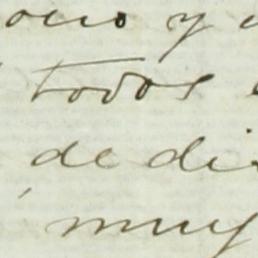 y
todos
de di
muy